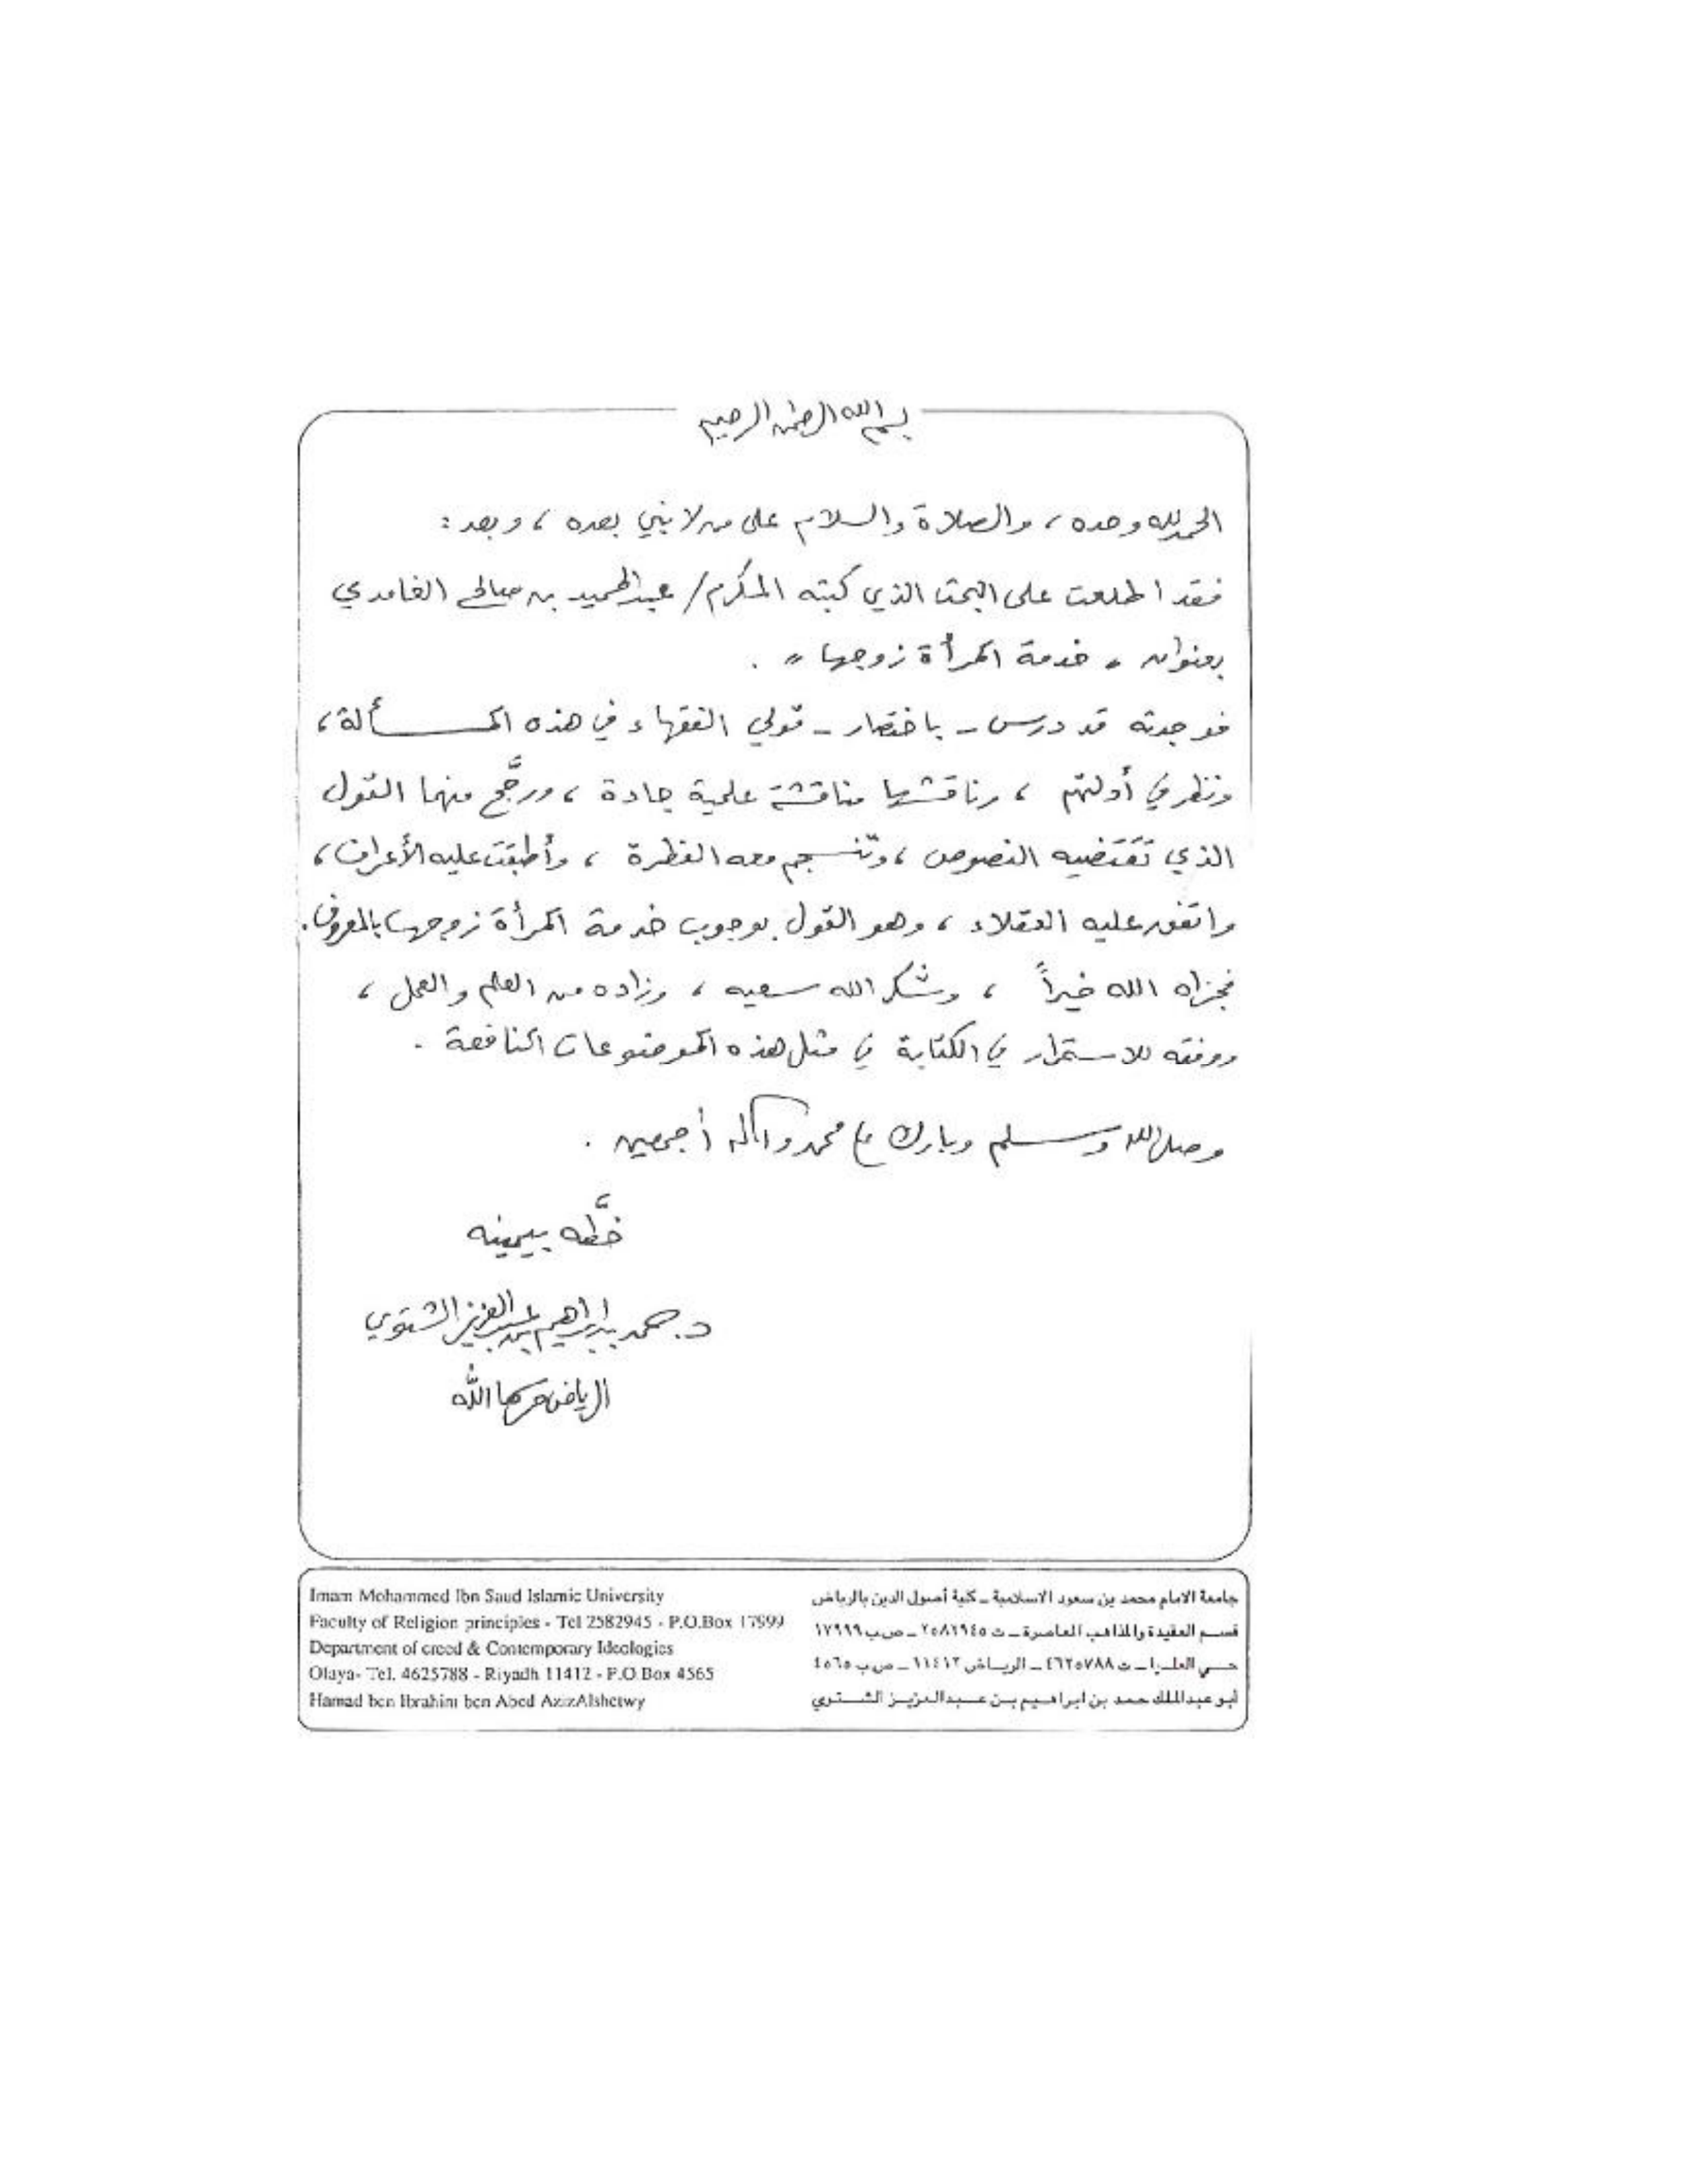 بسم الله الرحمن الرحيم
الحمد لله وحده ، والصلاة والسلام على من لا نبي بعده ، وبعد :
فقد اطلعت على البحث الذي كتبه المكرم / عبدالحميد بن صالح الغامدي
بعنوان " خدمة المرأة زوجها " .
فوجدته قد درس - باختصار - قولي الفقهاء في هذه المسألة ،
ونظر في أدلتهم ، وناقشها مناقشة علمية جادة ، ورجَّح منهما القول
الذي تقتضيه النصوص ، وتنسجم معه الفطرة ، وأطبقت عليه الأعراف ،
واتفق عليه العقلاء ، وهو القول بوجوب خدمة المرأة زوجها بالمعروف .
فجزاه الله خيراً ، وشكر الله سعيه ، وزاده من العلم والعمل ،
ووفقه للاستمرار في الكتابة في مثل هذه الموضوعات النافعة .
وصلى الله وسلم وبارك على محمد وآله أجمعين .
خطَّه بيمينه
د. حمد بن إبراهيم بن عبدالعزيز الشتوي
الرياض حرسها الله
جامعة الامام محمد بن سعود الاسلامية ـ كلية أصول الدين بالرياض
قسم العقيدة والمذاهب المعاصرة ـ ت ٢٥٨٢٩٤٥ ـ ص ب ١٧٩٩٩
حي العليا ـ ت ٤٦٢٥٧٨٨ ـ الرياض ١١٤١٢ ـ ص ب ٤٥٦٥
أبو عبدالملك حمد بن ابراهيم بن عبدالعزيز الشتوي
Imam Mohammed Ibn Saud Islamic University
Faculty of Religion principles - Tel 2582945 - P.O.Box 17999
Department of creed & Contemporary Ideologies
Olaya- Tel. 4625788 - Riyadh 11412 - P.O.Box 4565
Hamad ben Ibrahim ben Abed AzizAlshetwy